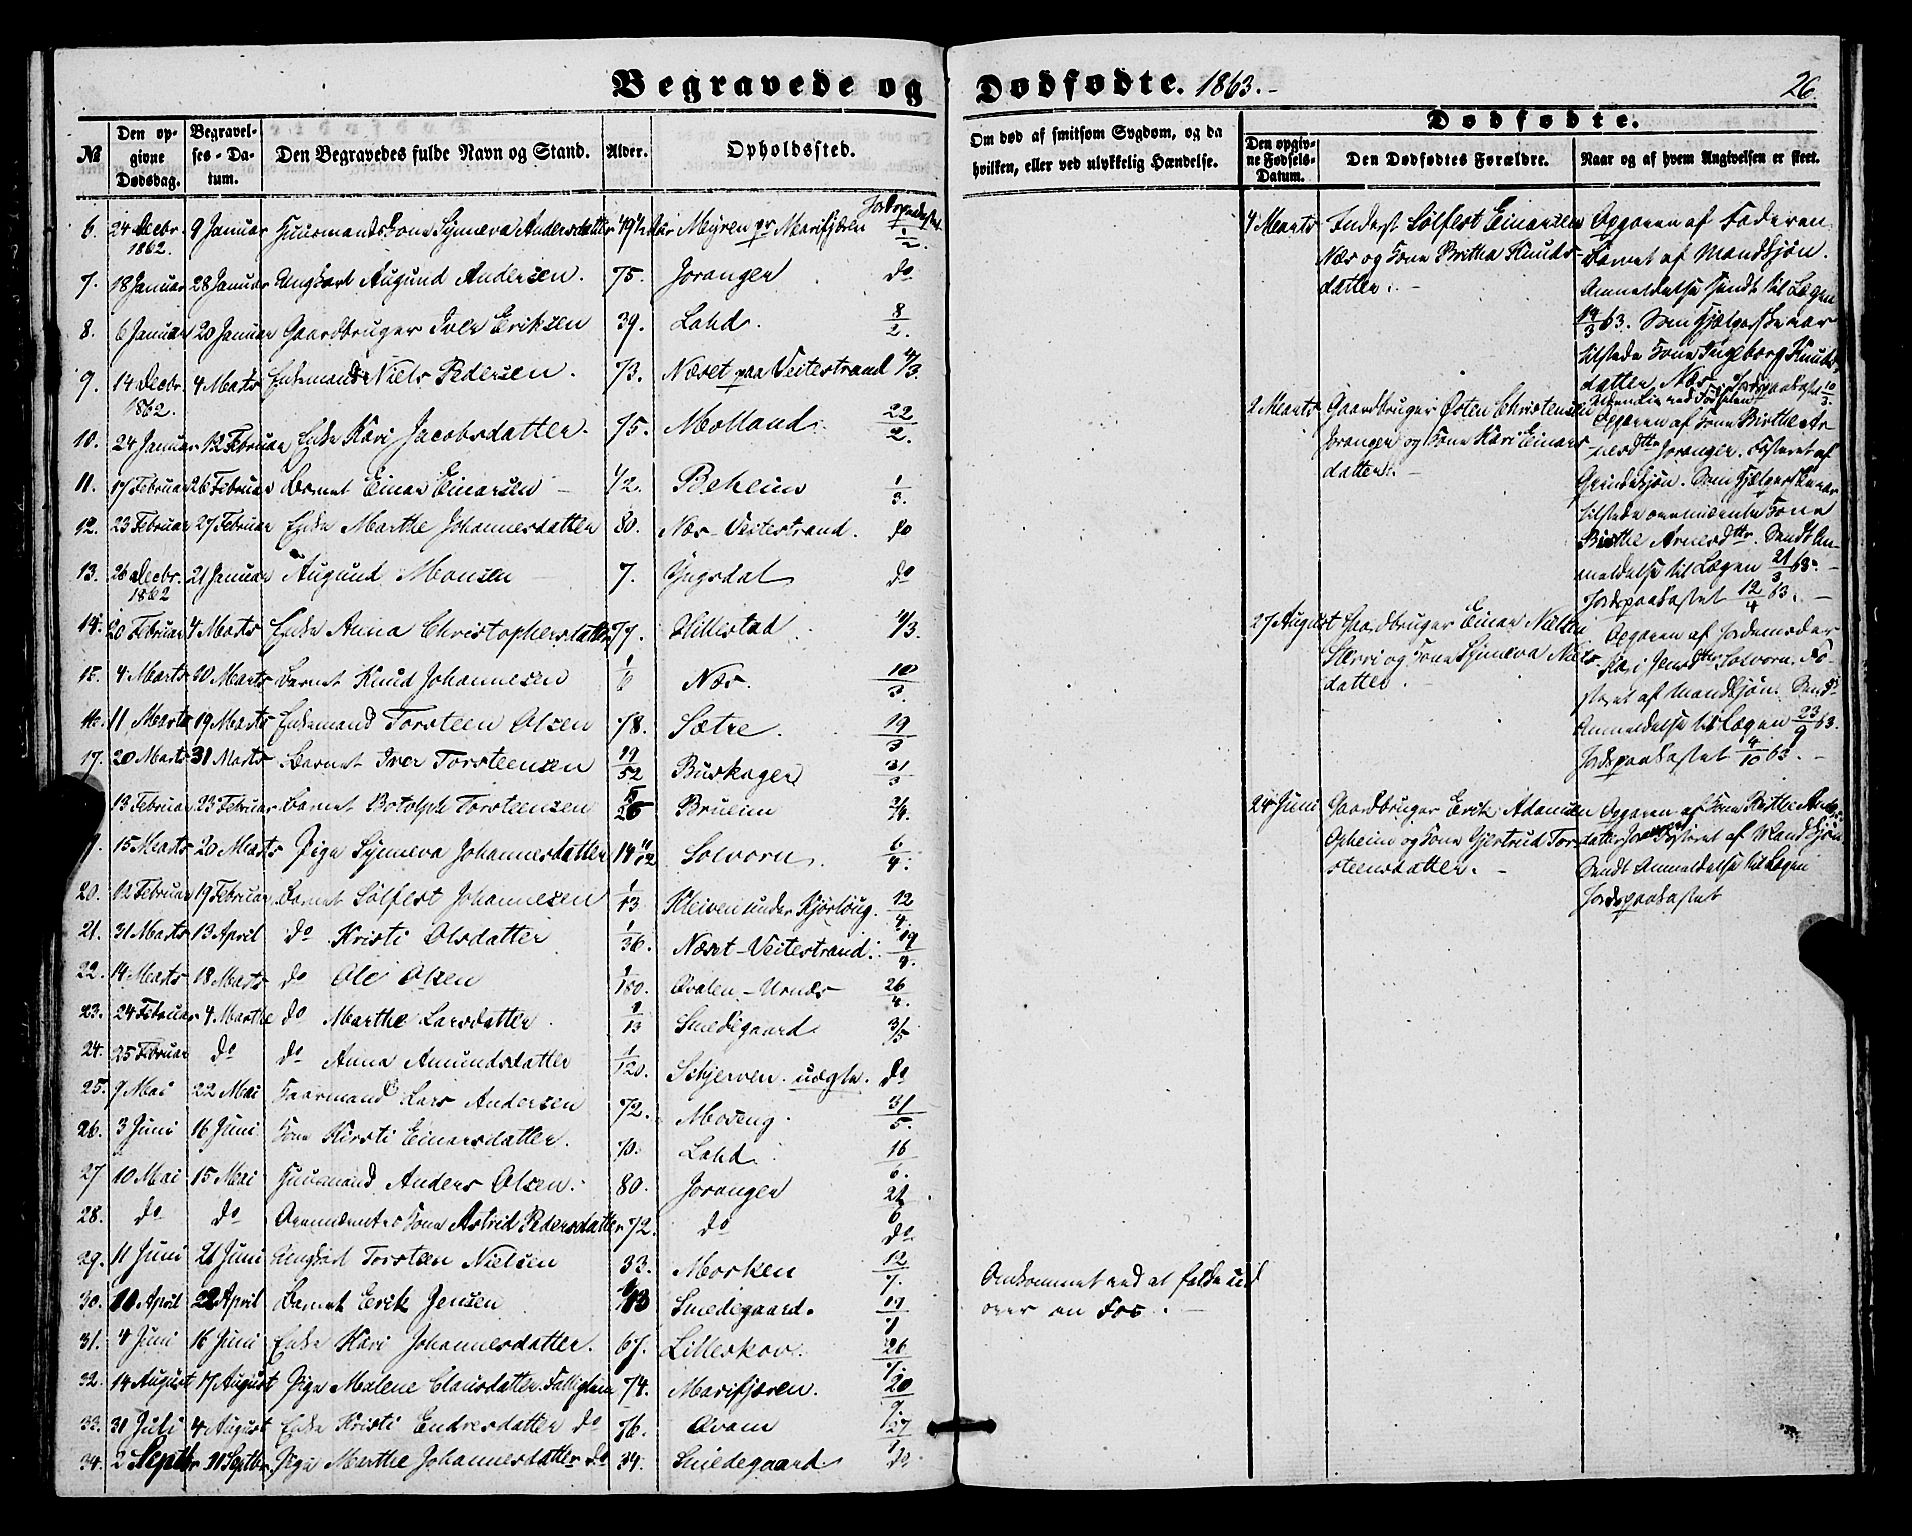 Begravede og Dødfødte. 1863.-
26.
№
Den opgivne Dødsdag.
Begravelses-Datum.
Den Begravedes fulde Navn og Stand.
Alder.
Opholdssted.
Om død af smitsom Sygdom, og da
hvilken, eller ved ulykkelig Hændelse.
Dødfødte.
Den opgivne Fødsels-Datum.
Den Dødfødtes Forældre.
Naar og af hvem Angivelsen er skeet.
6. 24 Decbr. 1862. 9 Januar Huusmandskone Synneva Andersdatter Myren pr Marifjæren 1/2.
7. 18 Januar 28 Januar Ungkarl Augund Andersen. 75. Joranger do
8. 6 Januar 20 Januar Gaardbruger Iver Eriksen 39. Lahd. 8/2.
9. 14 Decbr. 1862. 4 Marts Enkemand Niels Pedersen. 73. Næset paa Veitestrand 4/3.
10. 24 Januar 12 Februar Enke Kari Jacobsdatter. 75. Molland. 22/2.
11. 17 Februar 26 Februar Barnet Einar Einarsen 1/2. Beheim 1/3.
12. 23 Februar 27 Februar Enke Marthe Johannesdatter 80. Næs Veitestrand. do
13. 26 Decbr. 1862 21 Januar Augund Monsen 7. Yngsdal do
14. 20 Februar 4 Marts Enke Anna Christophersdatter 77. Hillestad 4/3.
15. 4 Marts 10 Marts Barnet Knud Johannesen 1/6 Næs. 10/3.
16. 11 Marts 19 Marts Enkemand Torsteen Olsen 78. Sætre. 19/3
17. 20 Marts 31 Marts Barnet Iver Torsteensen 19/52 Buskager 31/3
13 Februar 23 Februar Barnet Botolph Torsteensen Brueim 2/4.
15 Marts 20 Marts Pige Synneva Johannesdatter 14 11/12 Solvorn. 6/4.
20. 12 Februar 19 Februar Barnet Sølfest Johannesen 1/13 Kleiven under Kjørlaug. 12/4.
21. 31 Marts 13 April do Kristi Olsdatter 1/36. Næset-Veitestrand. 19/4.
22. 14 Marts 18 Marts do Ole Olsen Qvalen-Urnæs 26/4.
23. 24 Februar 4 Marthe do Marthe Larsdatter. 1/13 Smedegaard 3/5
24. 25 Februar do do Anna Amundsdatter 1/120. Skjerven. uægte. do
25. 9 Mai 22 Mai Kaarmand Lars Andersen 72. Moseng. 31/5.
26. 3 Juni 16 Juni Kone Kirsti Einarsdatter. 70. Lahd. 16/6.
27 10 Mai 15 Mai Huusmand Anders Olsen. 80. Joranger 21/6
28. do do Ovennævntes Kone Astrid Pedersdatter 72. do do
29. 11 Juni 21 Juni Ungkarl Torsten Nielsen 33. Morken 12/7. Omkommet ved at falde ud
over en Fos.
30. 10 April 22 April Barnet Erik Jensen Smedegaard.
31. 4 Juni 16 Juni Enke Kari Johannesdatter. 67. Lilleskov. 26/7.
32. 14 August 17 August Pige Malene Clausdatter Fattiglem 74. Marifjæren. 20/9.
33. 31 Juli 4 August Enke Kristi Endresdatter do 76. Qvam 27
34. 2 Septbr 11 Septbr. Pige Marthe Johannesdatter do 34. Smedegaard do
4 Marts Inderst Sølfest Einarsen
Næs og Kone Britha Knuds-
datter.
Opgaven af Faderen
Barnet af Mandkjøn.
Anmeldelse sendt til Lægen
19/3 63. Som Hjælperske var
tilstede Kone Ingeborg Knuds-
datter Næs. Jordpaakastet 10/3.
2 Marts Gaardbruger Østen Christensen
Joranger og Kone Kari Einars
datter.
Opgaven af Kone Birthe Ar-
nesdtr Joranger. Fosteret af
Qvindekjøn. Som Hjælperske var
tilstede ovennævnte Kone
Birthe Arnesdtr. Sendt An-
meldelse til Lægen 21/3 63.
Jordspaakastet 12/4 63.
27 August Gaardbruger Einar Nielsen
og Kone Synneva Niels-
datter.
Opgaven af Jordemoder
Kari Jensdtr Solvorn. Fo-
steret af Mandkjøn. Sendt
Anmeldelse til Lægen 23/9 63.
Jordspaakastet 4/10 63.
24 Juni Gaardbruger Erik Adamsen
Opheim og Kone Gjertrud Tor-
steensdatter.
Opgaven af Kone Birthe
datter Joranger Fosteret af Mandkjøn
Sendt Anmeldelse til Lægen
Jordspaakastet